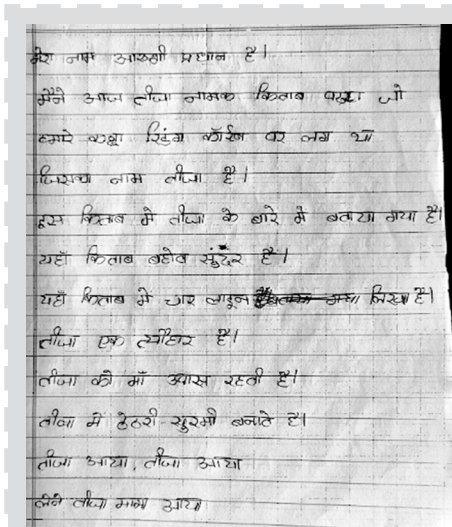 मेरा नाम आरुषी प्रधान है।
मैंने आज तीजा नामक किताब पढ़ा जो
हमारे कक्षा रिडिंग कॉर्नर पर लगा था
जिसका नाम तीजा है।
इस किताब मे तीजा के बारे मे बताया गया है।
यहाँ किताब बहोत सुंदर है।
यहाँ किताब में चार लाइन लिखा है।
तीजा एक त्यौहार है।
तीजा को माँ उपास रहती है।
तीजा में ठेठरी-खुरमी बनाते है।
तीजा आया, तीजा आया
लेने तीजा मामा आया